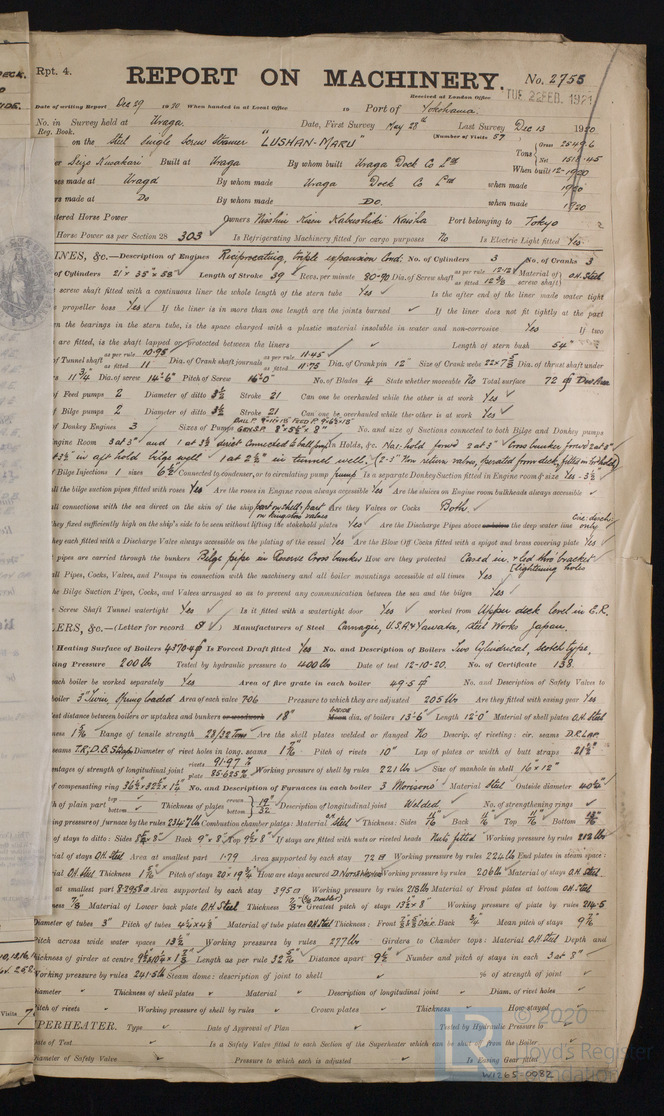 Rpt. 4.
REPORT ON MACHINERY.
No. 2753
Received at London Office
TUE 22 FEB. 1921
Date of writing Report Dec 29 1920 When handed in at Local Office to Port of Yokohama.
No. in Survey held at Uraga. Date, First Survey May 28th Last Survey Dec 13 1920
Reg. Book. (Number of Visits 57
on the Steel Single Screw Steamer "LUSHAN-MARU
Tons Gross 2549.6 Net 1518.45
er Seizo Kuwakari Built at Uraga By whom built Uraga Dock Co Ltd When built 12-1920
nes made at Uraga By whom made Uraga Dock Co Ltd when made 1920
rs made at Do By whom made Do. when made 1920
tered Horse Power Owners Nisshin Kisen Kabushiki Kaisha Port belonging to Tokyo
Horse Power as per Section 28 303 Is Refrigerating Machinery fitted for cargo purposes No Is Electric Light fitted Yes.
INES, &c.—Description of Engines Reciprocating, triple expansion Cond. No. of Cylinders 3 No. of Cranks 3
of Cylinders 21" x 35" x 58" Length of Stroke 39 Revs. per minute 80-90 Dia. of Screw shaft as per rule 12.12 as fitted 12 3/8 Material of screw shaft O.H. Steel
screw shaft fitted with a continuous liner the whole length of the stern tube Yes Is the after end of the liner made water tight
propeller boss Yes If the liner is in more than one length are the joints burned If the liner does not fit tightly at the part
n the bearings in the stern tube, is the space charged with a plastic material insoluble in water and non-corrosive Yes If two
are fitted, is the shaft lapped or protected between the liners Length of stern bush 54"
of Tunnel shaft as per rule 10.95 as fitted 11 Dia. of Crank shaft journals as per rule 11.45 as fitted 11.75 Dia. of Crank pin 12" Size of Crank webs 22 x 7 5/8 Dia. of thrust shaft under
s 11 3/4 Dia. of screw 14'-6" Pitch of Screw 16'-0" No. of Blades 4 State whether moveable No Total surface 72
of Feed pumps 2 Diameter of ditto 3 1/2 Stroke 21 Can one be overhauled while the other is at work Yes
of Bilge pumps 2 Diameter of ditto 3 1/2 Stroke 21 Can one be overhauled while the other is at work Yes
of Donkey Engines 3 Sizes of Pumps No. and size of Suctions connected to both Bilge and Donkey pumps
ngine Room 3 at 3" and 1 at 3 1/2 direct connected to ball. pump In Holds, &c. No.1. hold forwd 2 at 3" Cross bunker forwd 2 at 3"
in aft hold bilge well 1 at 2 1/2" in tunnel well,
of Bilge Injections 1 sizes 6 1/2 Connected to condenser, or to circulating pump pump Is a separate Donkey Suction fitted in Engine room & size Yes - 3 1/2"
all the bilge suction pipes fitted with roses Yes Are the roses in Engine room always accessible Yes Are the sluices on Engine room bulkheads always accessible
all connections with the sea direct on the skin of the ship part on shell & part on kingston valves Are they Valves or Cocks Both
they fixed sufficiently high on the ship's side to be seen without lifting the stokehold plates Yes Are the Discharge Pipes above or below the deep water line
they each fitted with a Discharge Valve always accessible on the plating of the vessel Yes Are the Blow Off Cocks fitted with a spigot and brass covering plate Yes
pipes are carried through the bunkers Bilge pipe in Reserve Cross bunker How are they protected Cased in, & led thro' bracket [lightning holes
ll Pipes, Cocks, Valves, and Pumps in connection with the machinery and all boiler mountings accessible at all times Yes
he Bilge Suction Pipes, Cocks, and Valves arranged so as to prevent any communication between the sea and the bilges Yes
Screw Shaft Tunnel watertight Yes Is it fitted with a watertight door Yes worked from Upper deck level in E.R.
LERS, &c.—(Letter for record S) Manufacturers of Steel Carnegie, U.S.A. & Yawata, Steel Works Japan.
Heating Surface of Boilers 4370.4 Is Forced Draft fitted Yes No. and Description of Boilers Two Cylindrical, Scotch type,
king Pressure 200 lbs Tested by hydraulic pressure to 400 lbs Date of test 12-10-20. No. of Certificate 138
each boiler be worked separately Yes Area of fire grate in each boiler 49.5 No. and Description of Safety Valves to
boiler 3" Twin, Spring loaded Area of each valve 7.06 Pressure to which they are adjusted 205 lbs Are they fitted with easing gear Yes
est distance between boilers or uptakes and bunkers or woodwork 18" Mean dia. of boilers 13'-6" Length 12'-0" Material of shell plates O.H. Steel
ness Range of tensile strength 28/32 Tons Are the shell plates welded or flanged No Descrip. of riveting: cir. seams D.R. Lap.
seams T.R., D.B. Straps Diameter of rivet holes in long. seams Pitch of rivets 10" Lap of plates or width of butt straps 21 1/2"
entages of strength of longitudinal joint rivets 91.97 % plate 85.625 % Working pressure of shell by rules 221 lbs Size of manhole in shell 16" x 12"
of compensating ring No. and Description of Furnaces in each boiler 3 Morison's Material Steel Outside diameter
h of plain part top bottom Thickness of plates crown bottom 19/32" Description of longitudinal joint Welded No. of strengthening rings
ing pressure of furnace by the rules 234.7 lbs Combustion chamber plates: Material O.H. Steel Thickness: Sides 11/16" Back 11/16" Top 11/16" Bottom
of stays to ditto: Sides Back 9" x 8" Top 9 1/2 x 8" If stays are fitted with nuts or riveted heads Nuts fitted Working pressure by rules 212 lbs
ial of stays O.H. Steel Area at smallest part 1.79 Area supported by each stay 72 Working pressure by rules 224 lbs End plates in steam space:
rial O.H. Steel Thickness Pitch of stays How are stays secured Working pressure by rules 206 lbs Material of stays O.H. Steel
at smallest part 8.2958 Area supported by each stay 395 Working pressure by rules 218 lbs Material of Front plates at bottom O.H. Steel
ness 7/8 Material of Lower back plate O.H. Steel Thickness Greatest pitch of stays 13 1/2 x 8" Working pressure of plate by rules 214.5
Diameter of tubes 3" Pitch of tubes Material of tube plates O.H. Steel Thickness: Front Back 3/4" Mean pitch of stays
Pitch across wide water spaces 13 1/2 Working pressures by rules 277 lbs Girders to Chamber tops: Material O.H. Steel Depth and
hickness of girder at centre Length as per rule Distance apart 9 1/2" Number and pitch of stays in each 3 at 8"
Working pressure by rules 241.5 lb Steam dome: description of joint to shell % of strength of joint
Diameter Thickness of shell plates Material Description of longitudinal joint Diam. of rivet holes
Pitch of rivets Working pressure of shell by rules Crown plates Thickness How stayed
UPERHEATER. Type Date of Approval of Plan Tested by Hydraulic Pressure to
Date of Test Is a Safety Valve fitted to each Section of the Superheater which can be shut from the Boiler
Diameter of Safety Valve Pressure to which each is adjusted Is Easing Gear fitted
© 2020
Lloyd's Register
Foundation
W1265-0082